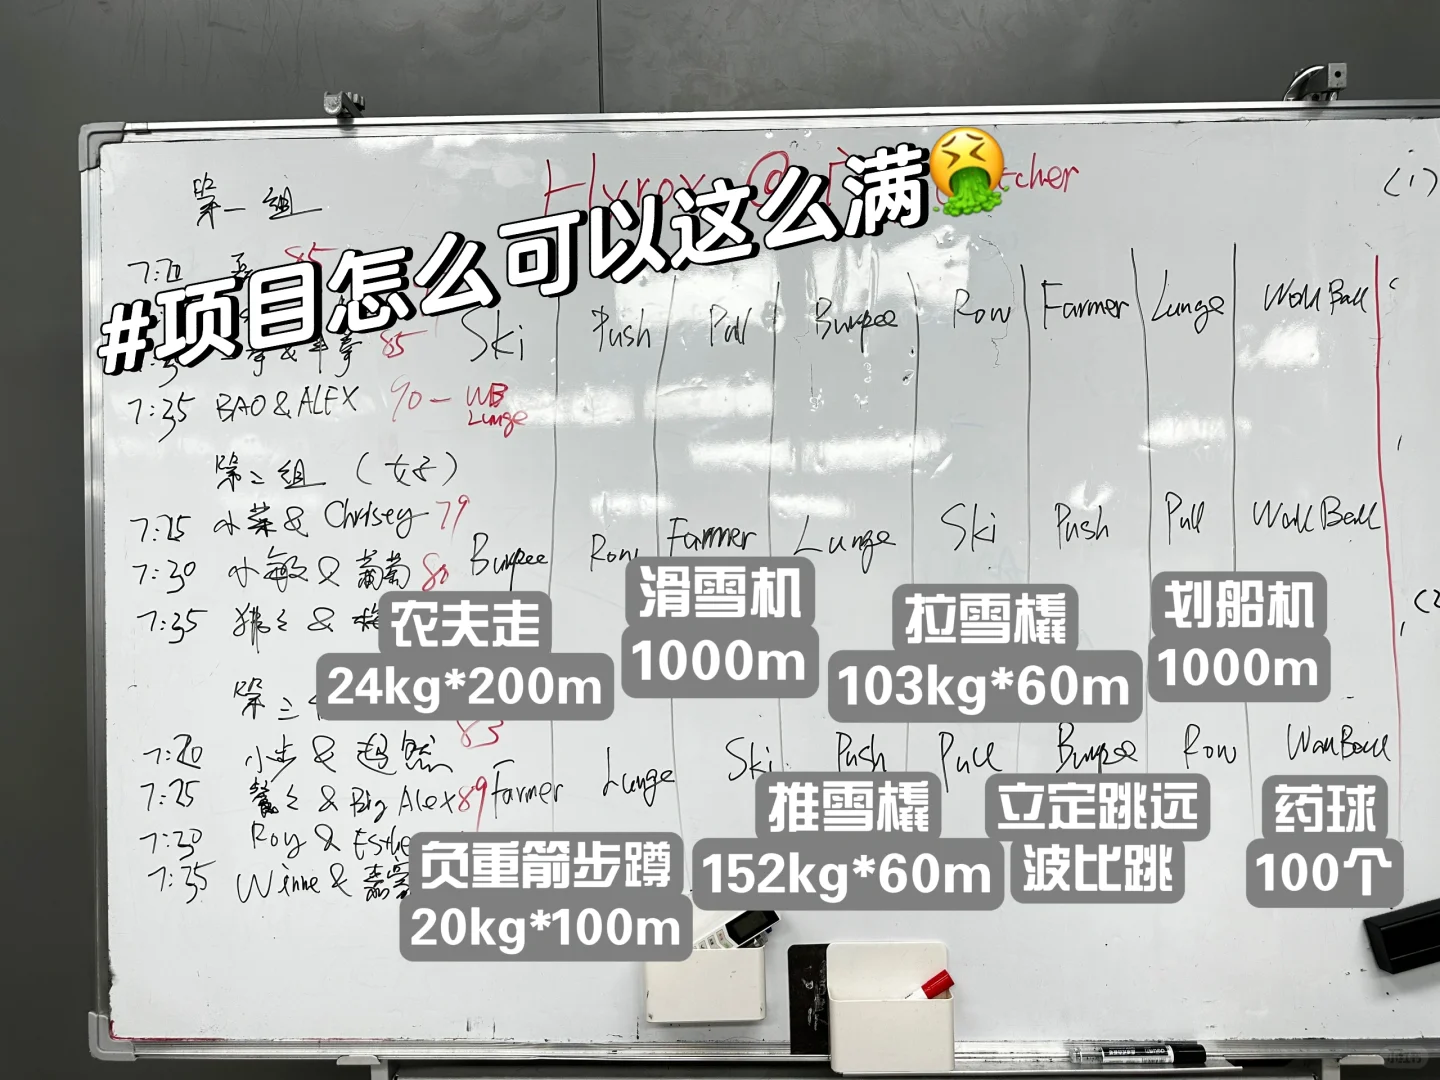 第一组
Hyrox @ cher
(1)
#项目怎么可以这么满
7:20 85
85
7:35 BAO & ALEX 90 - WB
Lunge
Ski Push Pull Burpee Row Farmer Lunge Wall Ball
第二组 (女子)
7:25 小菜 & Chrisey 79
7:30 小敏 & 葡萄 80
7:35 &
Burpee Row Farmer Lunge Ski Push Pull Wall Ball
农夫走
24kg*200m
滑雪机
1000m
拉雪橇
103kg*60m
划船机
1000m
(2
第三
83
7:20 小步 & 超然
7:25 & Big Alex 89
7:30 Roy & Esthe
7:35 Winne & 嘉
Farmer Lunge Ski Push Pull Burpee Row Wall Ball
负重箭步蹲
20kg*100m
推雪橇
152kg*60m
立定跳远
波比跳
药球
100个